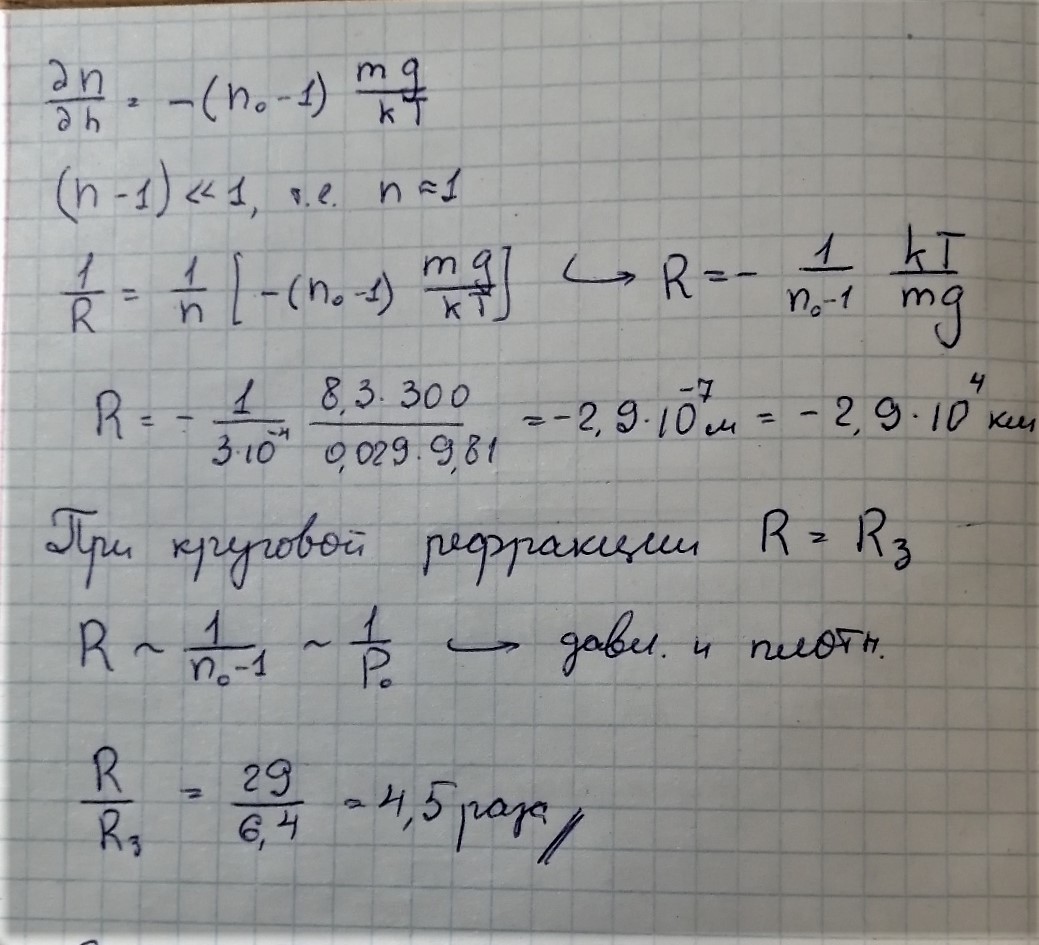 ∂n/∂h = -(n₀-1) mg/kT
(n-1) << 1, т.е. n ≈ 1
1/R = 1/n [-(n₀-1) mg/kT] ↪ R = - 1/(n₀-1) kT/mg
R = - 1/(3·10⁻⁴) (8,3·300)/(0,029·9,81) = -2,9·10⁻⁷ м = -2,9·10⁴ км
При круговой рефракции R = R₃
R ~ 1/(n₀-1) ~ 1/P₀ ↪ давл. и плотн.
R/R₃ = 29/6,4 = 4,5 раза //